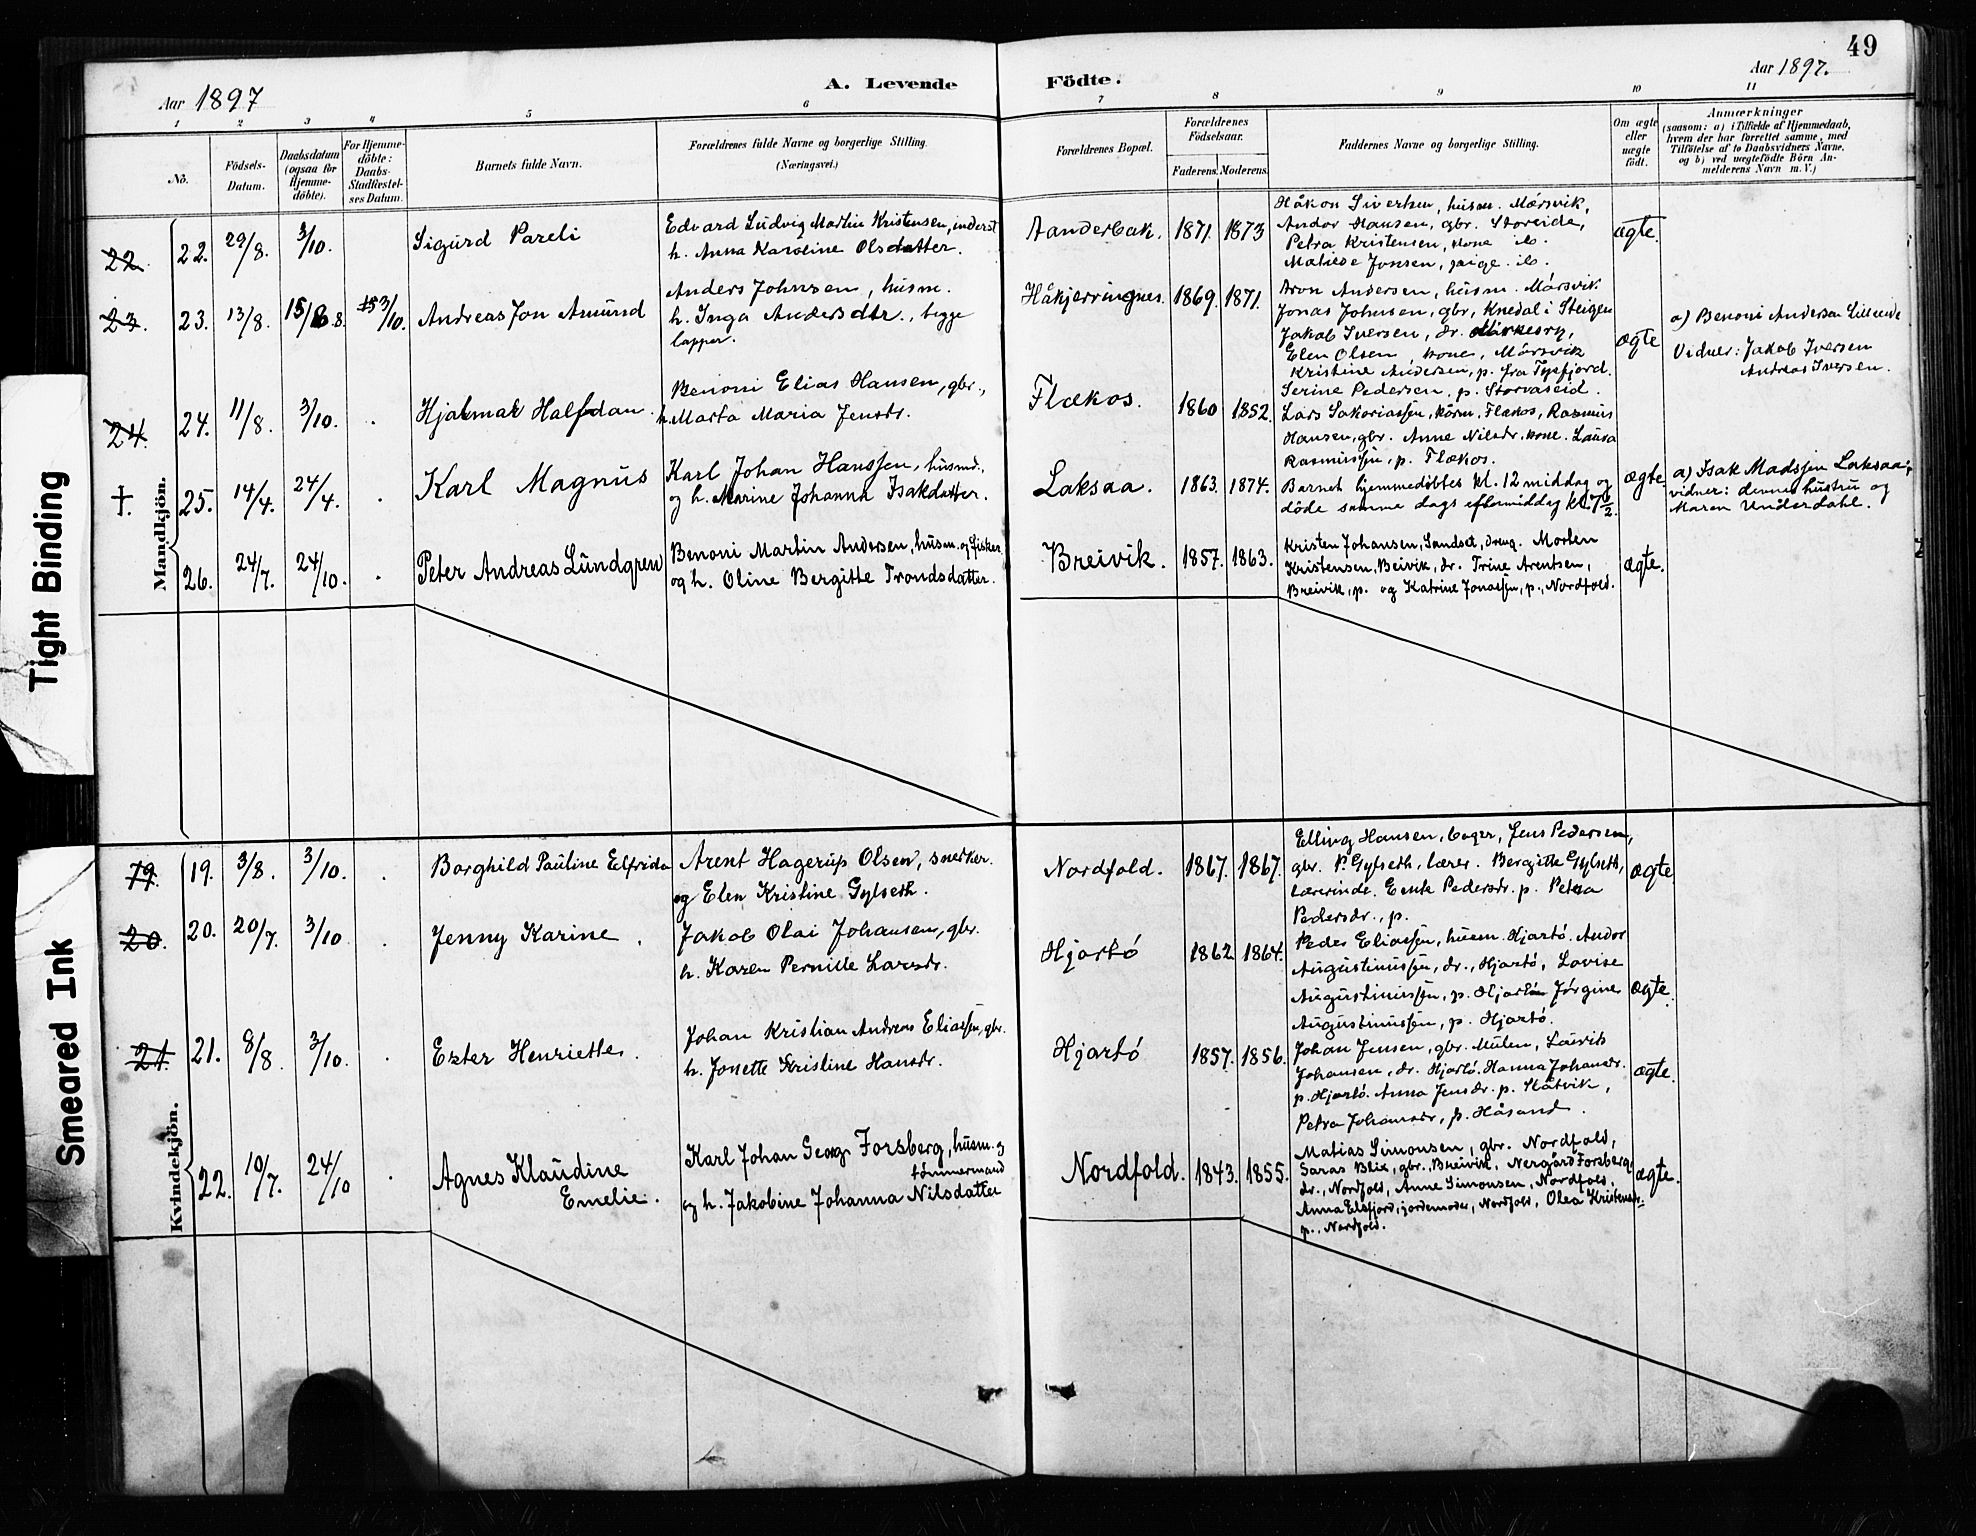 49
Aar 1897
A. Levende
Födte.
Aar 1897.
1 2 3 4 5 6 7 8 9 10 11
No.
Födsels-
Datum.
Daabsdatum
(ogsaa for
Hjemme-
döbte).
For Hjemme-
döbte:
Daabs-
Stadfæstel-
ses Datum.
Barnets fulde Navn.
Forældrenes fulde Navne og borgerlige Stilling.
(Næringsvei.)
Forældrenes Bopæl.
Forældrenes
Födselsaar.
Faderens. Moderens.
Faddernes Navne og borgerlige Stilling.
Om ægte
eller
uægte
födt.
Anmærkninger
(saasom: a) i Tilfælde af Hjemmedaab,
hvem der har forrettet samme, med
Tilföielse af to Daabsvidners Navne,
og b) ved uægtefödte Börn An-
melderens Navn m. V.)
Mandkjön.
22 22. 29/8. 3/10. Sigurd Pareli
Edvard Ludvig Martin Kristensen, inderst
h. Anna Karoline Olsdatter.
Aanderbak. 1871. 1873
Håkon Sivertsen, husm. Mørsvik,
Andor Hansen, gbr. Storeide,
Petra Kristensen, kone ib.
Jonsen, pige. ib.
ægte.
23. 23. 13/8. 15/8. 8. 3/10. Andreas Jon Amund
Anders Johnsen, husm.
h. Inga Andersdtr., begge
lapper.
Håkjerringnes. 1869. 1871.
Aron Andersen, husm. Mørsvik
Jonas Johnsen, gbr, Knedal i Steigen
Jakob Iversen, dr.
Elen Olsen, kone, Mørsvik
Kristine Andersen, p. fra Tysfjord.
ægte
a) Benoni Andersen Lilleeide
Vidner: Jakob Iversen
Andreas Iversen.
24. 24. 11/8. 3/10. Hjalmar Halfdan.
Benoni Elias Hansen, gbr.,
h. Marta Maria Jensdr.
Flækos. 1860 1852.
Serine Pedersen, p. Storvaseid.
Lars Sakariassen, Flækos, Rasmus
Hansen, gbr. Anne Nilsdr. kone. Laura
Rasmussen, p. Flækos.
† 25. 14/4. 24/4. Karl Magnus
Karl Johan Hanssen, husmd.,
og h. Marine Johanna Isakdatter.
Laksaa. 1863. 1874.
Barnet hjemmedöbtes kl. 12 middag og
döde samme dags eftermiddag kl. 7 1/2.
ægte.
a) Isak Madssen Laksaa,
vidner: dennes hustru og
Maren Underdahl.
26. 24/7. 24/10. Peter Andreas Lundgren
Benoni Martin Andersen, husm. og fisker
og h. Oline Bergitte Trondsdatter.
Breivik. 1857. 1863.
Kristen Johansen, Sandset, dreng. Morten
Kristensen, Beivik, dr. Trine Arentsen,
Breivik, p. og Katrine Jonassen, p., Nordfold.
ægte.
Kvindekjön.
19. 19. 3/8. 3/10. Borghild Pauline Elfrida
Arent Hagerup Olsen, snekker.
og Elen Kristine Gylseth.
Nordfold. 1867. 1867.
Elling Hansen, bager, Jens Pedersen,
gbr. P. Gylseth, lærer. Bergitte Gylseth,
lærerinde. Pedersdr. p. Petra
Pedersdr., p.
ægte
20. 20. 20/7. 3/10 Jenny Karine.
Jakob Olai Johansen, gbr.
h. Karen Pernille Larsdr.
Hjartö 1862 1864.
Peder Eliassen, husm. Hjartö. Andor
Augustinussen, dr., Hjartö, Lovise
Augustinussen, p. Hjartö Jörgine
Augustinussen, p. Hjartö.
ægte.
21. 21. 8/8. 3/10. Ester Henriette.
Johan Kristian Andreas Eliassen, gbr.
h. Jonette Kristine Hansdr.
Hjartö 1857. 1856.
Johan Jensen, gbr. Mulen, Laurits
Johansen, dr. Hjartö. Hanna Johansdr.
p. Hjartö. Anna Jensdr. p. Slåtvik,
Petra Johansdr, p. Håsand.
ægte.
22. 10/7. 24/10 Agnes Klaudine
Emelie.
Karl Johan Georg Forsberg, husm. og
tömmermand
og h. Jakobine Johanna Nilsdatter
Nordfold. 1843. 1855.
Matias Simonsen, gbr. Nordfold,
Saras Blix, gbr., Breivik, Nergård Forsberg,
dr., Nordfold, Anne Simonsen, Nordfold,
Anna Elsfjord, jordemoder, Nordfold, Olea Kristensdr.
p., Nordfold.
ægte.
Tight Binding
Smeared Ink